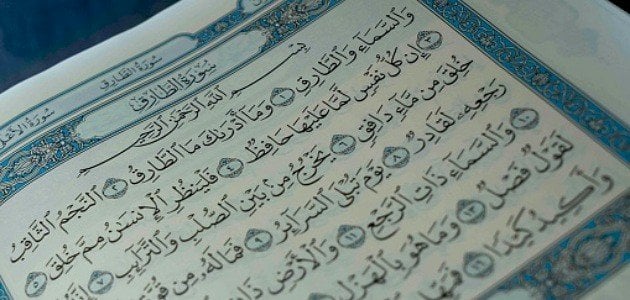 سُورَةُ الطَّارِقِ
سُورَةُ الطَّارِقِ
بِسۡمِ ٱللَّهِ ٱلرَّحۡمَٰنِ ٱلرَّحِيمِ
وَٱلسَّمَآءِ وَٱلطَّارِقِ ١ وَمَآ أَدۡرَىٰكَ مَا ٱلطَّارِقُ ٢ ٱلنَّجۡمُ ٱلثَّاقِبُ
٣ إِن كُلُّ نَفۡسٖ لَّمَّا عَلَيۡهَا حَافِظٞ ٤ فَلۡيَنظُرِ ٱلۡإِنسَٰنُ مِمَّ خُلِقَ ٥
خُلِقَ مِن مَّآءٖ دَافِقٖ ٦ يَخۡرُجُ مِنۢ بَيۡنِ ٱلصُّلۡبِ وَٱلتَّرَآئِبِ ٧
رَجۡعِهِۦ لَقَادِرٞ ٨ يَوۡمَ تُبۡلَى ٱلسَّرَآئِرُ ٩ فَمَا لَهُۥ مِن قُوَّةٖ
١٠ وَٱلسَّمَآءِ ذَاتِ ٱلرَّجۡعِ ١١ وَٱلۡأَرۡضِ ذَاتِ
لَقَوۡلٞ فَصۡلٞ ١٣ وَمَا هُوَ بِٱلۡهَزۡلِ
وَأَكِيدُ كَيۡدٗا ١٦